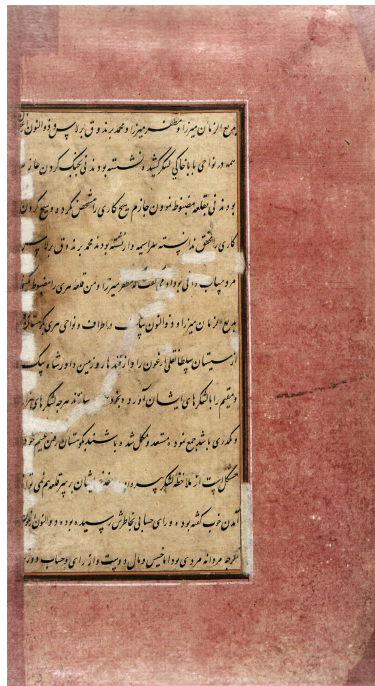 بدیع الزمان میرزا و مظفر میرزا و محمد برندوق برلاس و ذوالنون
همه در نواحی بابا خاکی لشکر کشیده نشسته بودند نی بجنگ کردن جازم
بودند نی بقلعه مضبوط نمودن جازم هیچ کاری را مشخص نکرده و هیچ کردن
کاری را محقق ندانسته سراسیمه وار نشسته بودند محمد برندوق برلاس
مرد حساب دانی بود او گفت که مظفر میرزا و من قلعه هری را مضبوط
بدیع الزمان میرزا و ذوالنون در اطراف و نواحی هری
از سیستان سلطانعلی ارغون را و از قندهار و زمین داور شاه بیک
و مقیم را با لشکرهای ایشان آورده بخود سازند هر چه لشکرهای
و نکدری باشد جمع نموده مستعد و مکمل شده باشند بکوهستان رفتن غنیم
مشکل است از ملاحظه لشکر بیرون ایشان بر سر قلعه هم نمی
آمدن خوب گفته بوده و رای حسابی بخاطرش رسیده بوده و ذوالنون
اگرچه مردانه مردی بود اما خسیس و مال دوست و از رای و حساب دور